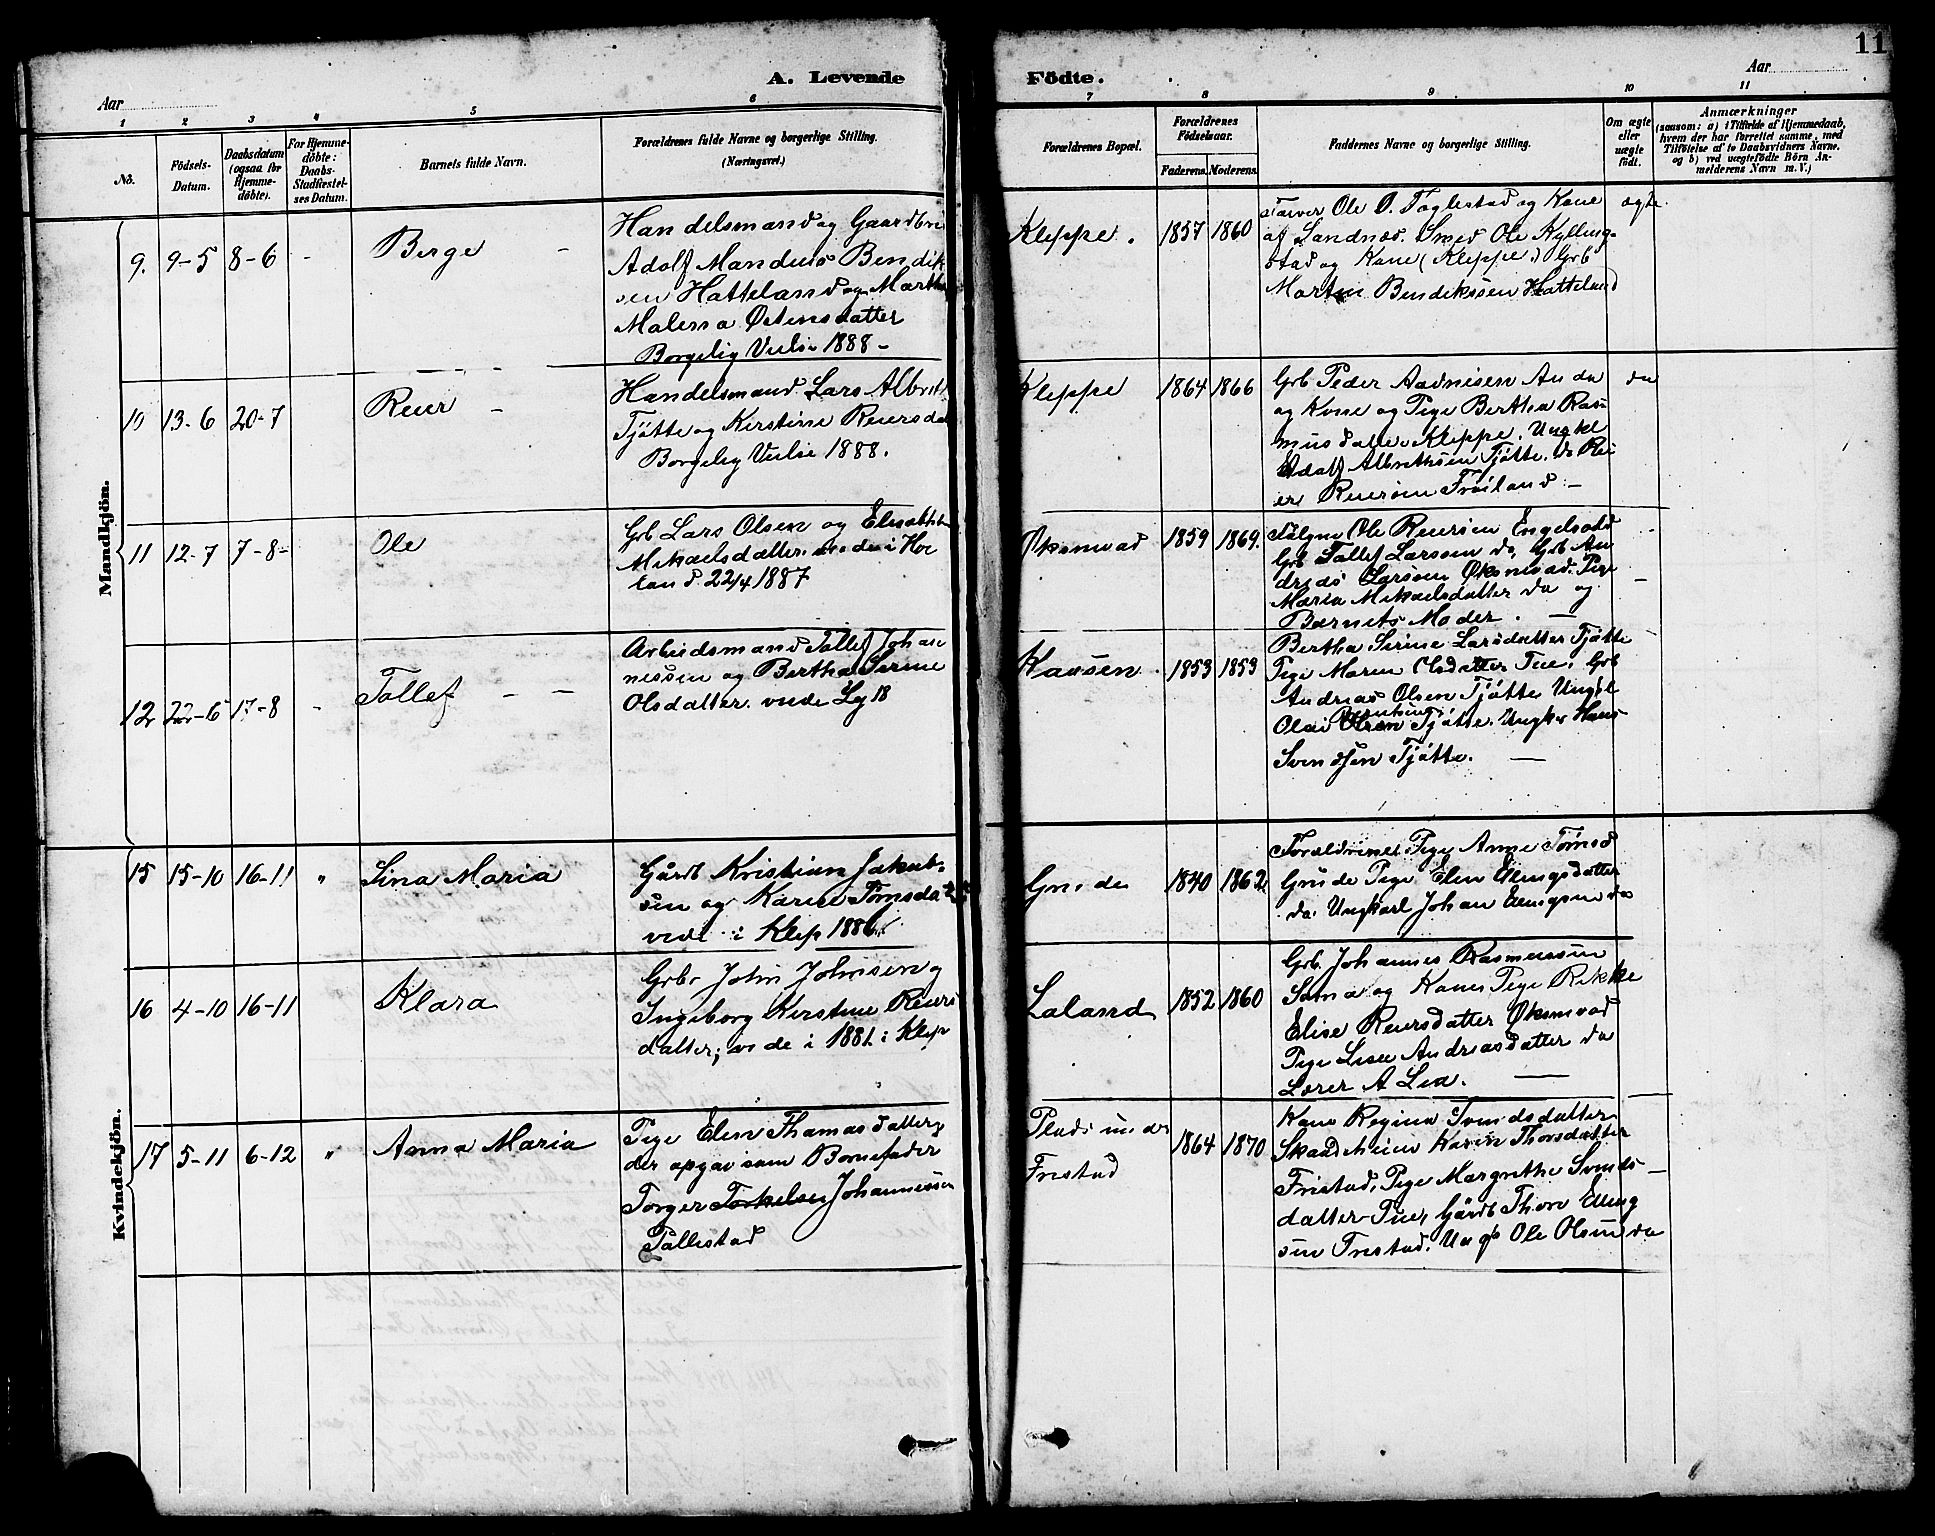 11
A. Levende Födte.
Aar
Aar
1 2 3 4 5 6 7 8 9 10 11
No.
Födsels-
Datum.
Daabsdatum
(ogsaa for
Hjemme-
döbte).
For Hjemme-
döbte:
Daabs-
Stadfæstel-
ses Datum.
Barnets fulde Navn.
Forældrenes fulde Navne og borgerlige Stilling.
(Næringsvei.)
Forældrenes Bopæl.
Forældrenes
Födselsaar.
Faderens. Moderens.
Faddernes Navne og borgerlige Stilling.
Om ægte
eller
uægte
födt.
Anmærkninger
(saasom: a) i Tilfælde af Hjemmedaab,
hvem der har forrettet samme, med
Tilföielse af to Daabsvidners Navne.
og b) ved uægtefödte Börn An-
melderens Navn m. V.)
Mandkjön.
9. 9-5 8-6 - Berge -
Handelsmand og Gaardbru
Adolf Mandius Bendik
sen Hatteland og Marth
Malena Østensdatter
Borgelig Vielse 1888 -
Kleppe. 1857 1860
Farver Ole O. Foglestad og Kone
af Sandnæs. Smed Ole Kylling-
stad og Kone (Kleppe.) Grb
Morten Bendikssen Hatteland
ægte
10 13-6 20-7 Reier -
Handelsmand Lars Albret
Tjøtte og Kirstine Reiersda
Borgelig Vielse 1888.
Kleppe 1864 1866
Grb Peder Aadnisen Anda
og Kone og Pige Bertha Ras-
musdatter Kleppe. Ungkl
Adolf Albrethsen Tjøtte. do Rei-
er Reiersen Frøiland -
do
11 12-7 7-8- Ole
Grb Lars Olsen og Elisabth
Mikaelsdatter. viede i Hø
land 22/4 1887
Øksnevad 1859 1869.
Følgm Ole Reiersen Engelsvold
Grb Tollef Larssen do, Grb An
dreas Larsen Øksnevad. Pige
Maria Mikaelsdatter do og
Barnets Moder. -
12 22-6 17-8 - Tollef - -
Arbeidsmand Tollef Johan
nessen og Bertha Serine
Olsdatter. viede Ly 18
Kaasen. 1853 1853
Bertha Serine Larsdatter Tjøtte
Pige Maren Olsdatter Tue, Grb
Andreas Olsen Tjøtte Ungkl
Olai Olsen Tjøtte. Ungkr Hans
Svendsen Tjøtte. -
Kvindekjön.
15 15-10 16-11 " Sina Maria
Gårdb Kristian Jakob-
sen og Karine Tørresdatter
viede i Klep 1886
Grude 1840 1862
Forældrene. Pige Anne Tørresd
Grude Pige Elen Elingsdatter
do. Ungkarl Johan Elingsen do
16 4-10 16-11 Klara
Grbr John Johnsen og
Ingeborg Kirstine Reiers
datter; viede i 1881 i Klep
Laland 1852 1860
Grb. Johannes Rasmussen
Soma og Kone, Pige Rikke
Elise Reiersdatter Øksnevad
Pige Lise Andreasdatter do
Lærer A Lea. -
17 5-11 6-12 " Anna Maria
Pige Elen Thomasdatter,
der opgav som Barnefader
Torger Torkelsen Johannessen
Pallestad
Plads under
Fristad
1864 1870
Kone Regina Svendsdatter
Skasheim Karin Thorsdatter
Fristad, Pige Margrethe Svends-
datter Tue, Gårdb Thore Eling
sen Fristad. Ungk Ole Olsen do